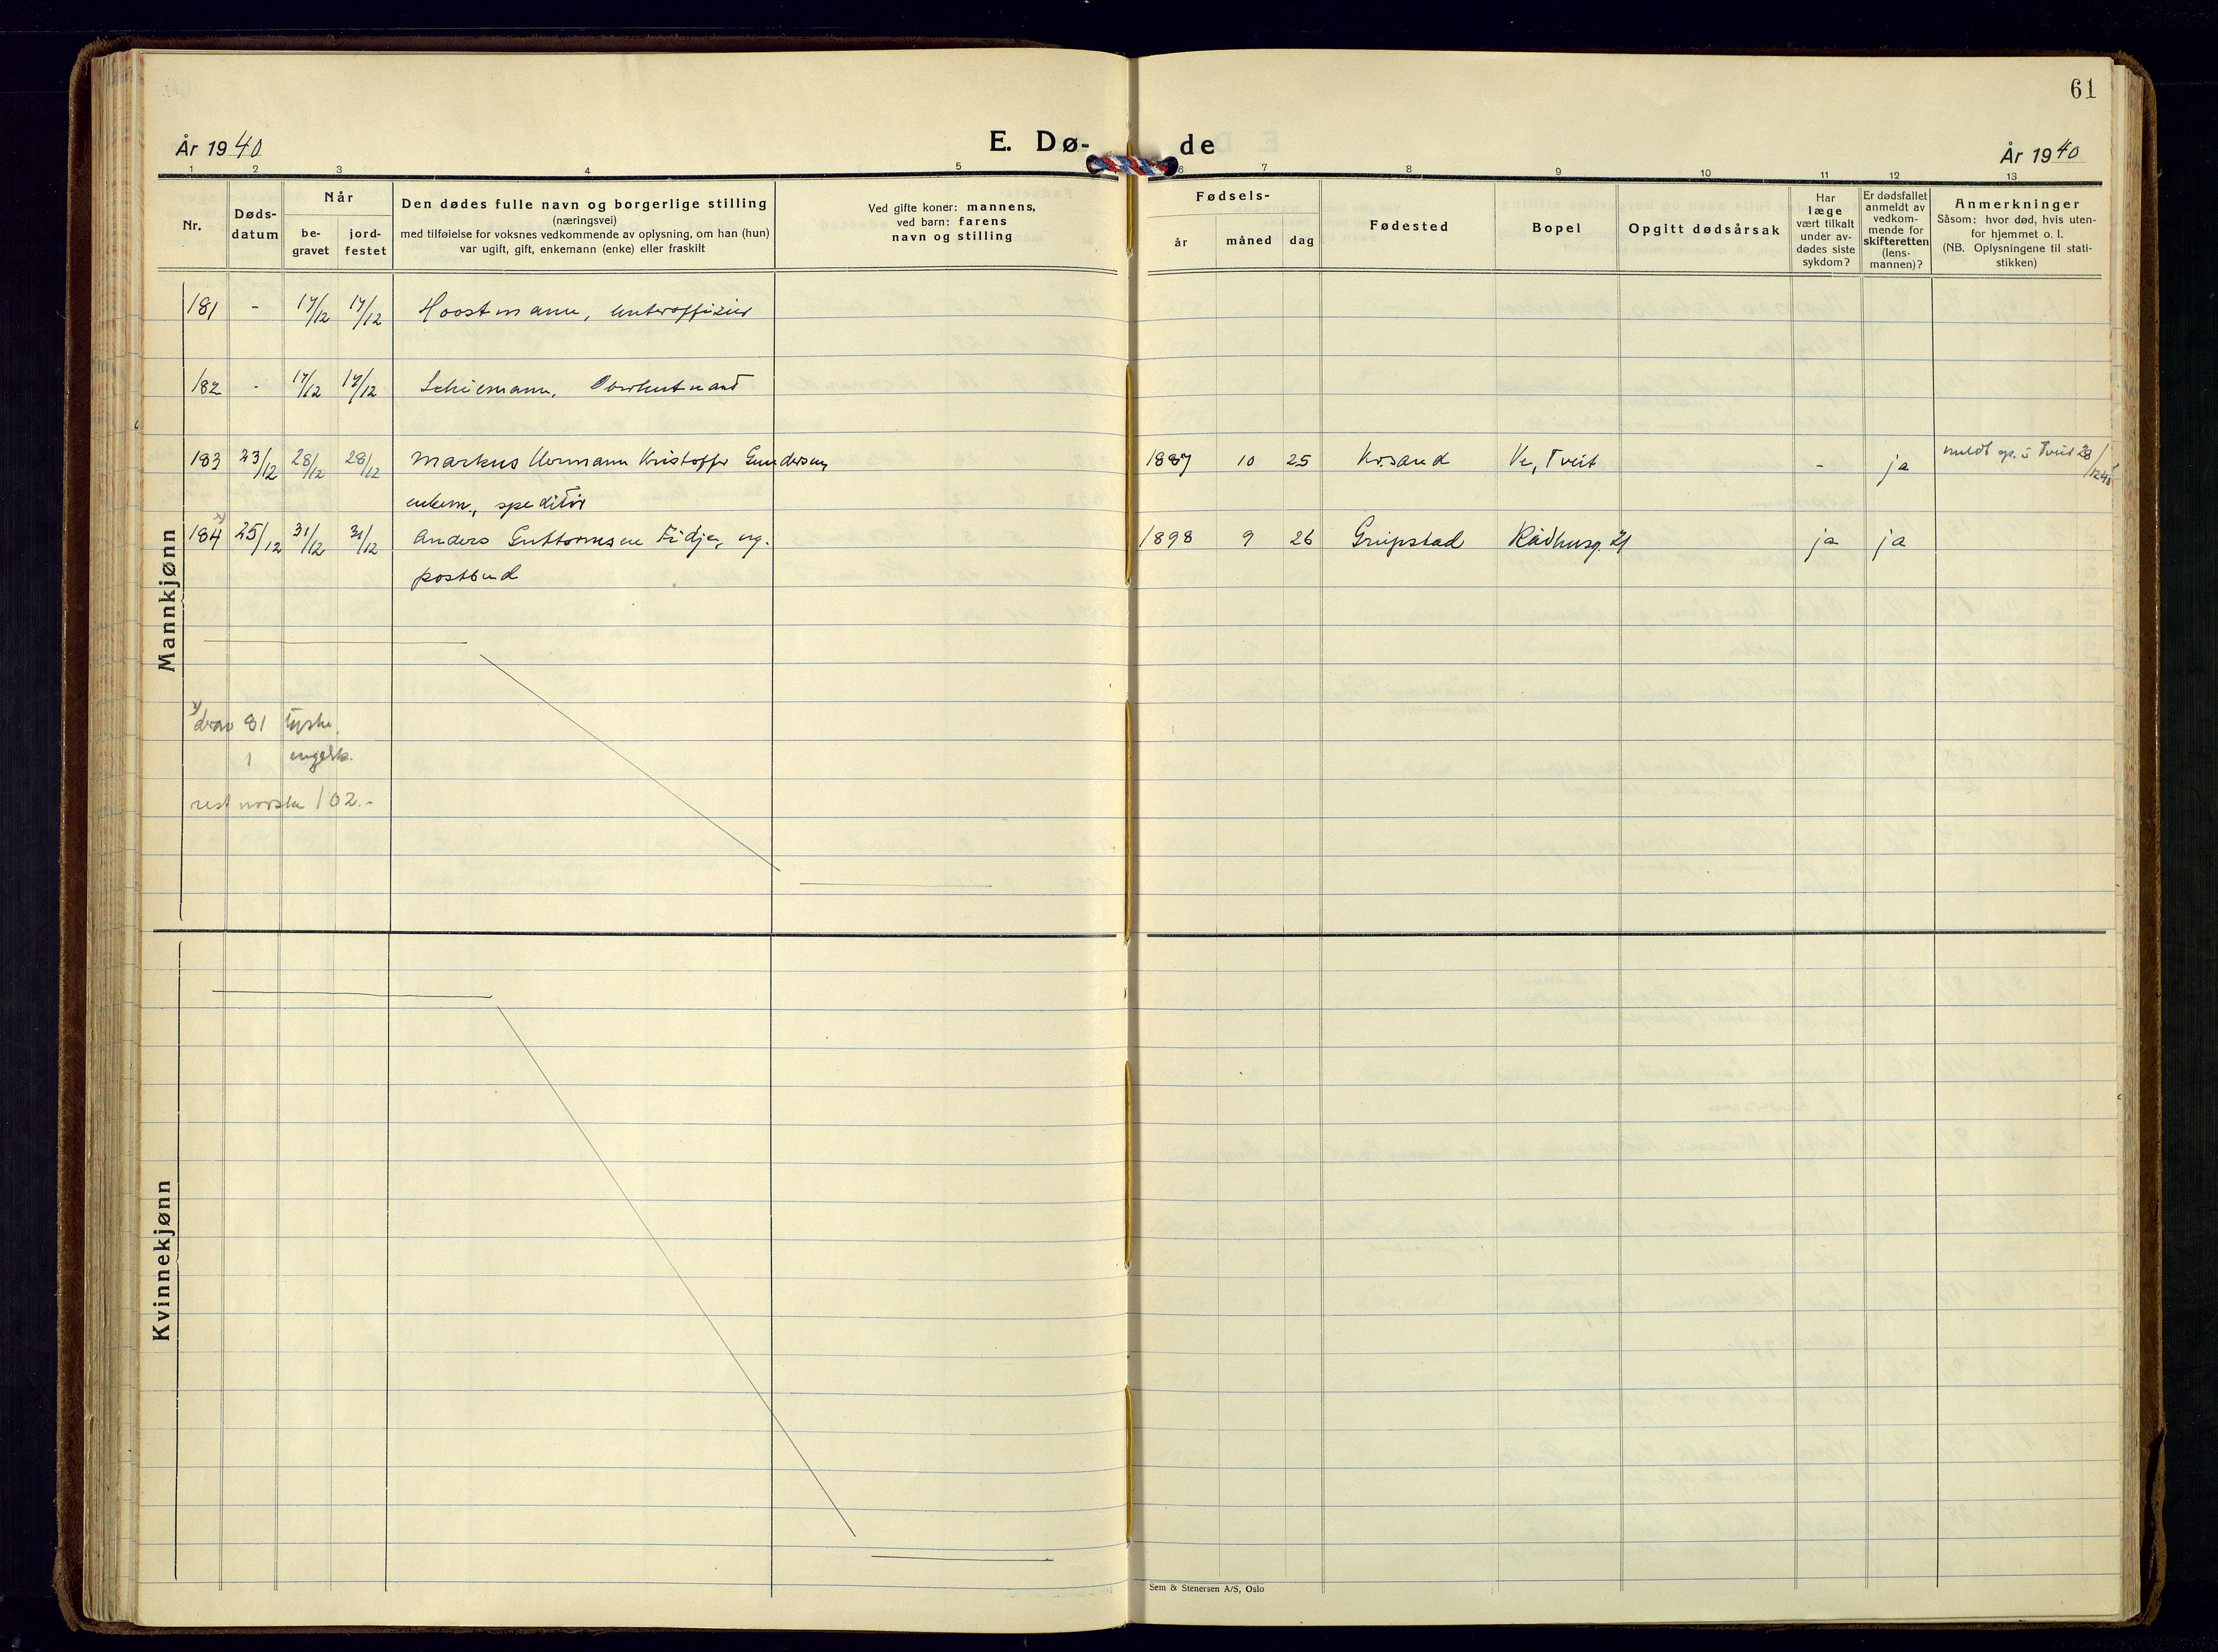 61
År 1940
E. Dø-
de
År 1940
1 2 3 4 5 6 7 8 9 10 11 12 13
Nr.
Døds-
datum
Når
be-
gravet
jord-
festet
Den dødes fulle navn og borgerlige stilling
(næringsvei)
med tilføielse for voksnes vedkommende av oplysning, om han (hun)
var ugift, gift, enkemann (enke) eller fraskilt
Ved gifte koner: mannens,
ved barn: farens
navn og stilling
Fødsels-
år måned dag
Fødested
Bopel
Opgitt dødsårsak
Har
læge
vært tilkalt
under av-
dødes siste
sykdom?
Er dødsfallet
anmeldt av
vedkom-
mende for
skifteretten
(lens-
mannen)?
Anmerkninger
Såsom: hvor død, hvis uten-
for hjemmet o. l.
(NB. Oplysningene til stati-
stikken)
Mannkjønn
181 - 17/12 17/12 Hoostmann, Unteroffizier
182 - 17/12 17/12 Schiemann, Oberleutnant
183 23/12 28/12 28/12 Markus Hermann Kristoffer Gundersen, 1887 10 25 Kr.sand Ve, Tveit - ja meldt sp. i Tveit 28/12 40
enkem., speditør
184 x) 25/12 31/12 31/12 Anders Guttormsen Fidje, ug. 1898 9 26 Greipstad Rådhusg. 21 ja ja
postbud
x) derav 81 tyske.
1 engelsk.
rest norske 102.-
Kvinnekjønn
Sem & Stenersen A/S, Oslo